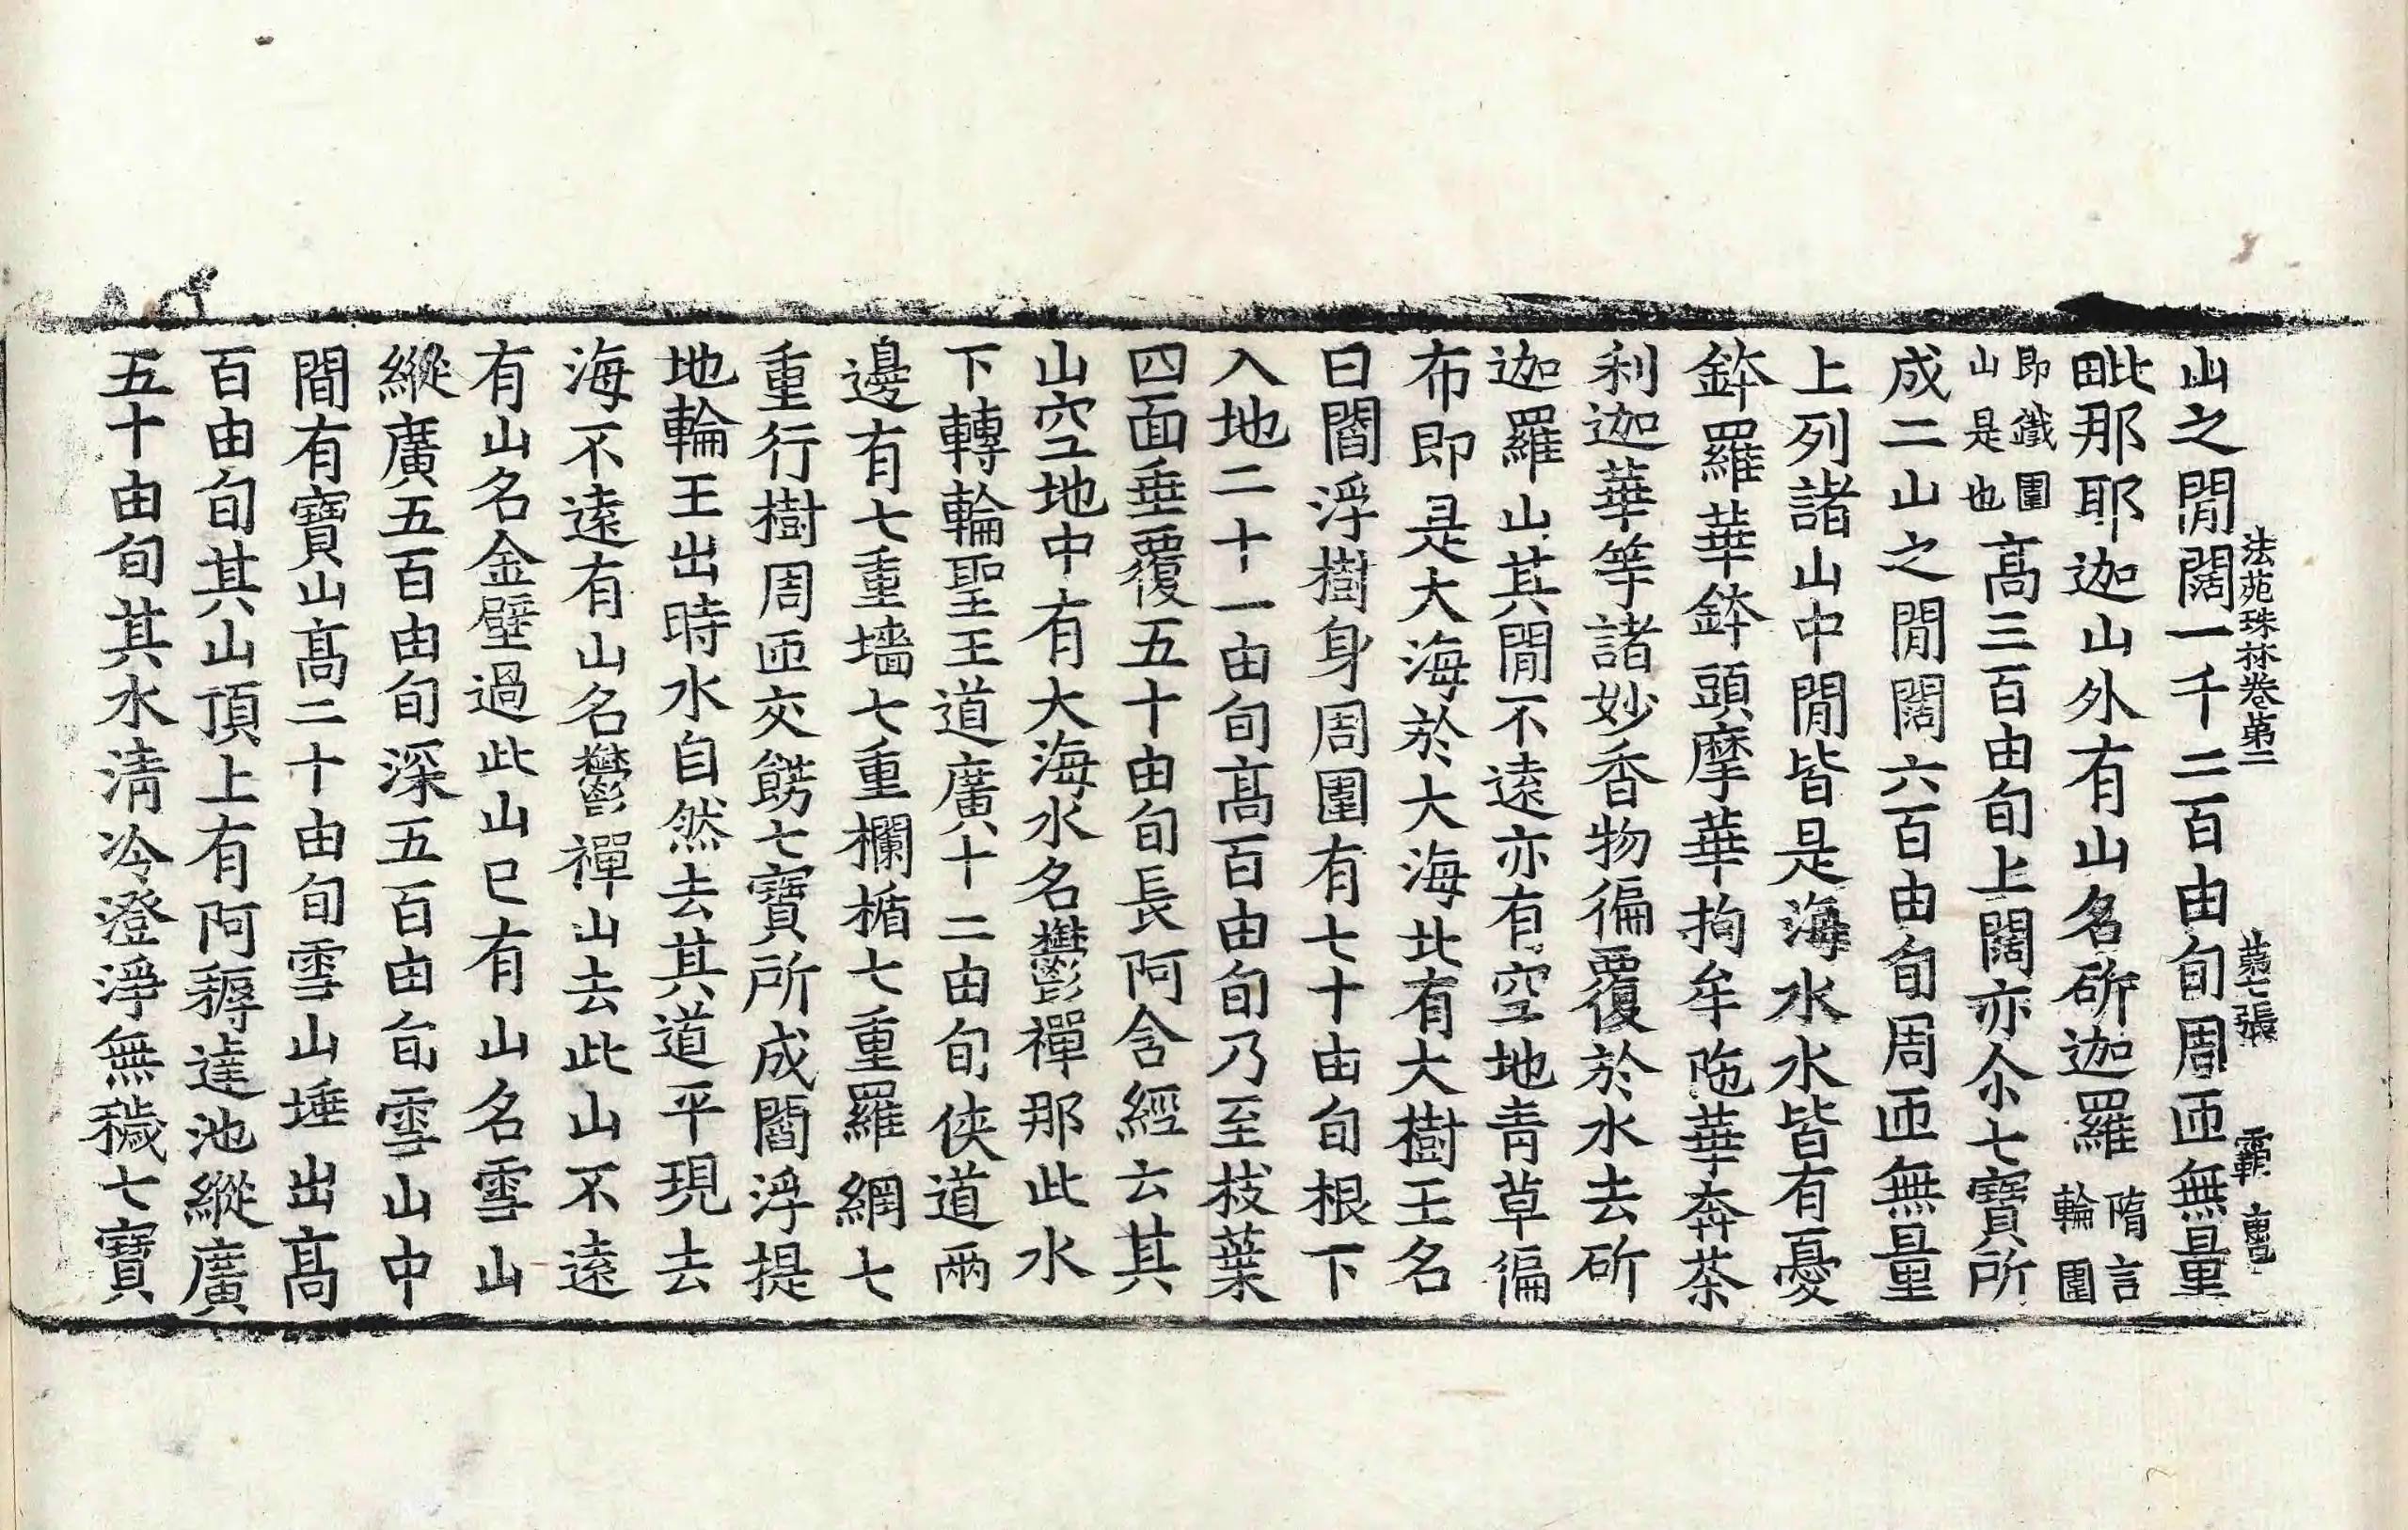 法苑珠林卷第二　第七張　霸
山之閒闊一千二百由旬周匝無量
毗那耶迦山外有山名斫迦羅隋言輪圍
即鐵圍山是也高三百由旬上闊亦尒七寶所
成二山之閒闊六百由旬周匝無量
上列諸山中閒皆是海水水皆有憂
鉢羅華鉢頭摩華拘牟陁華奔荼
利迦華等諸妙香物徧覆於水去斫
迦羅山其閒不遠亦有空地青草徧
布即是大海於大海北有大樹王名
曰閻浮樹身周圍有七十由旬根下
入地二十一由旬髙百由旬乃至枝葉
四面垂覆五十由旬長阿含經云其
山空地中有大海水名鬱禪那此水
下轉輪聖王道廣十二由旬俠道兩
邊有七重墻七重欄楯七重羅網七
重行樹周匝交飾七寶所成閻浮提
地輪王出時水自然去其道平現去
海不遠有山名鬱禪山去此山不遠
有山名金壁過此山已有山名雪山
縱廣五百由旬深五百由旬雪山中
間有寶山髙二十由旬雪山埵出髙
百由旬其山頂上有阿耨達池縱廣
五十由旬其水清冷澄淨無穢七寶